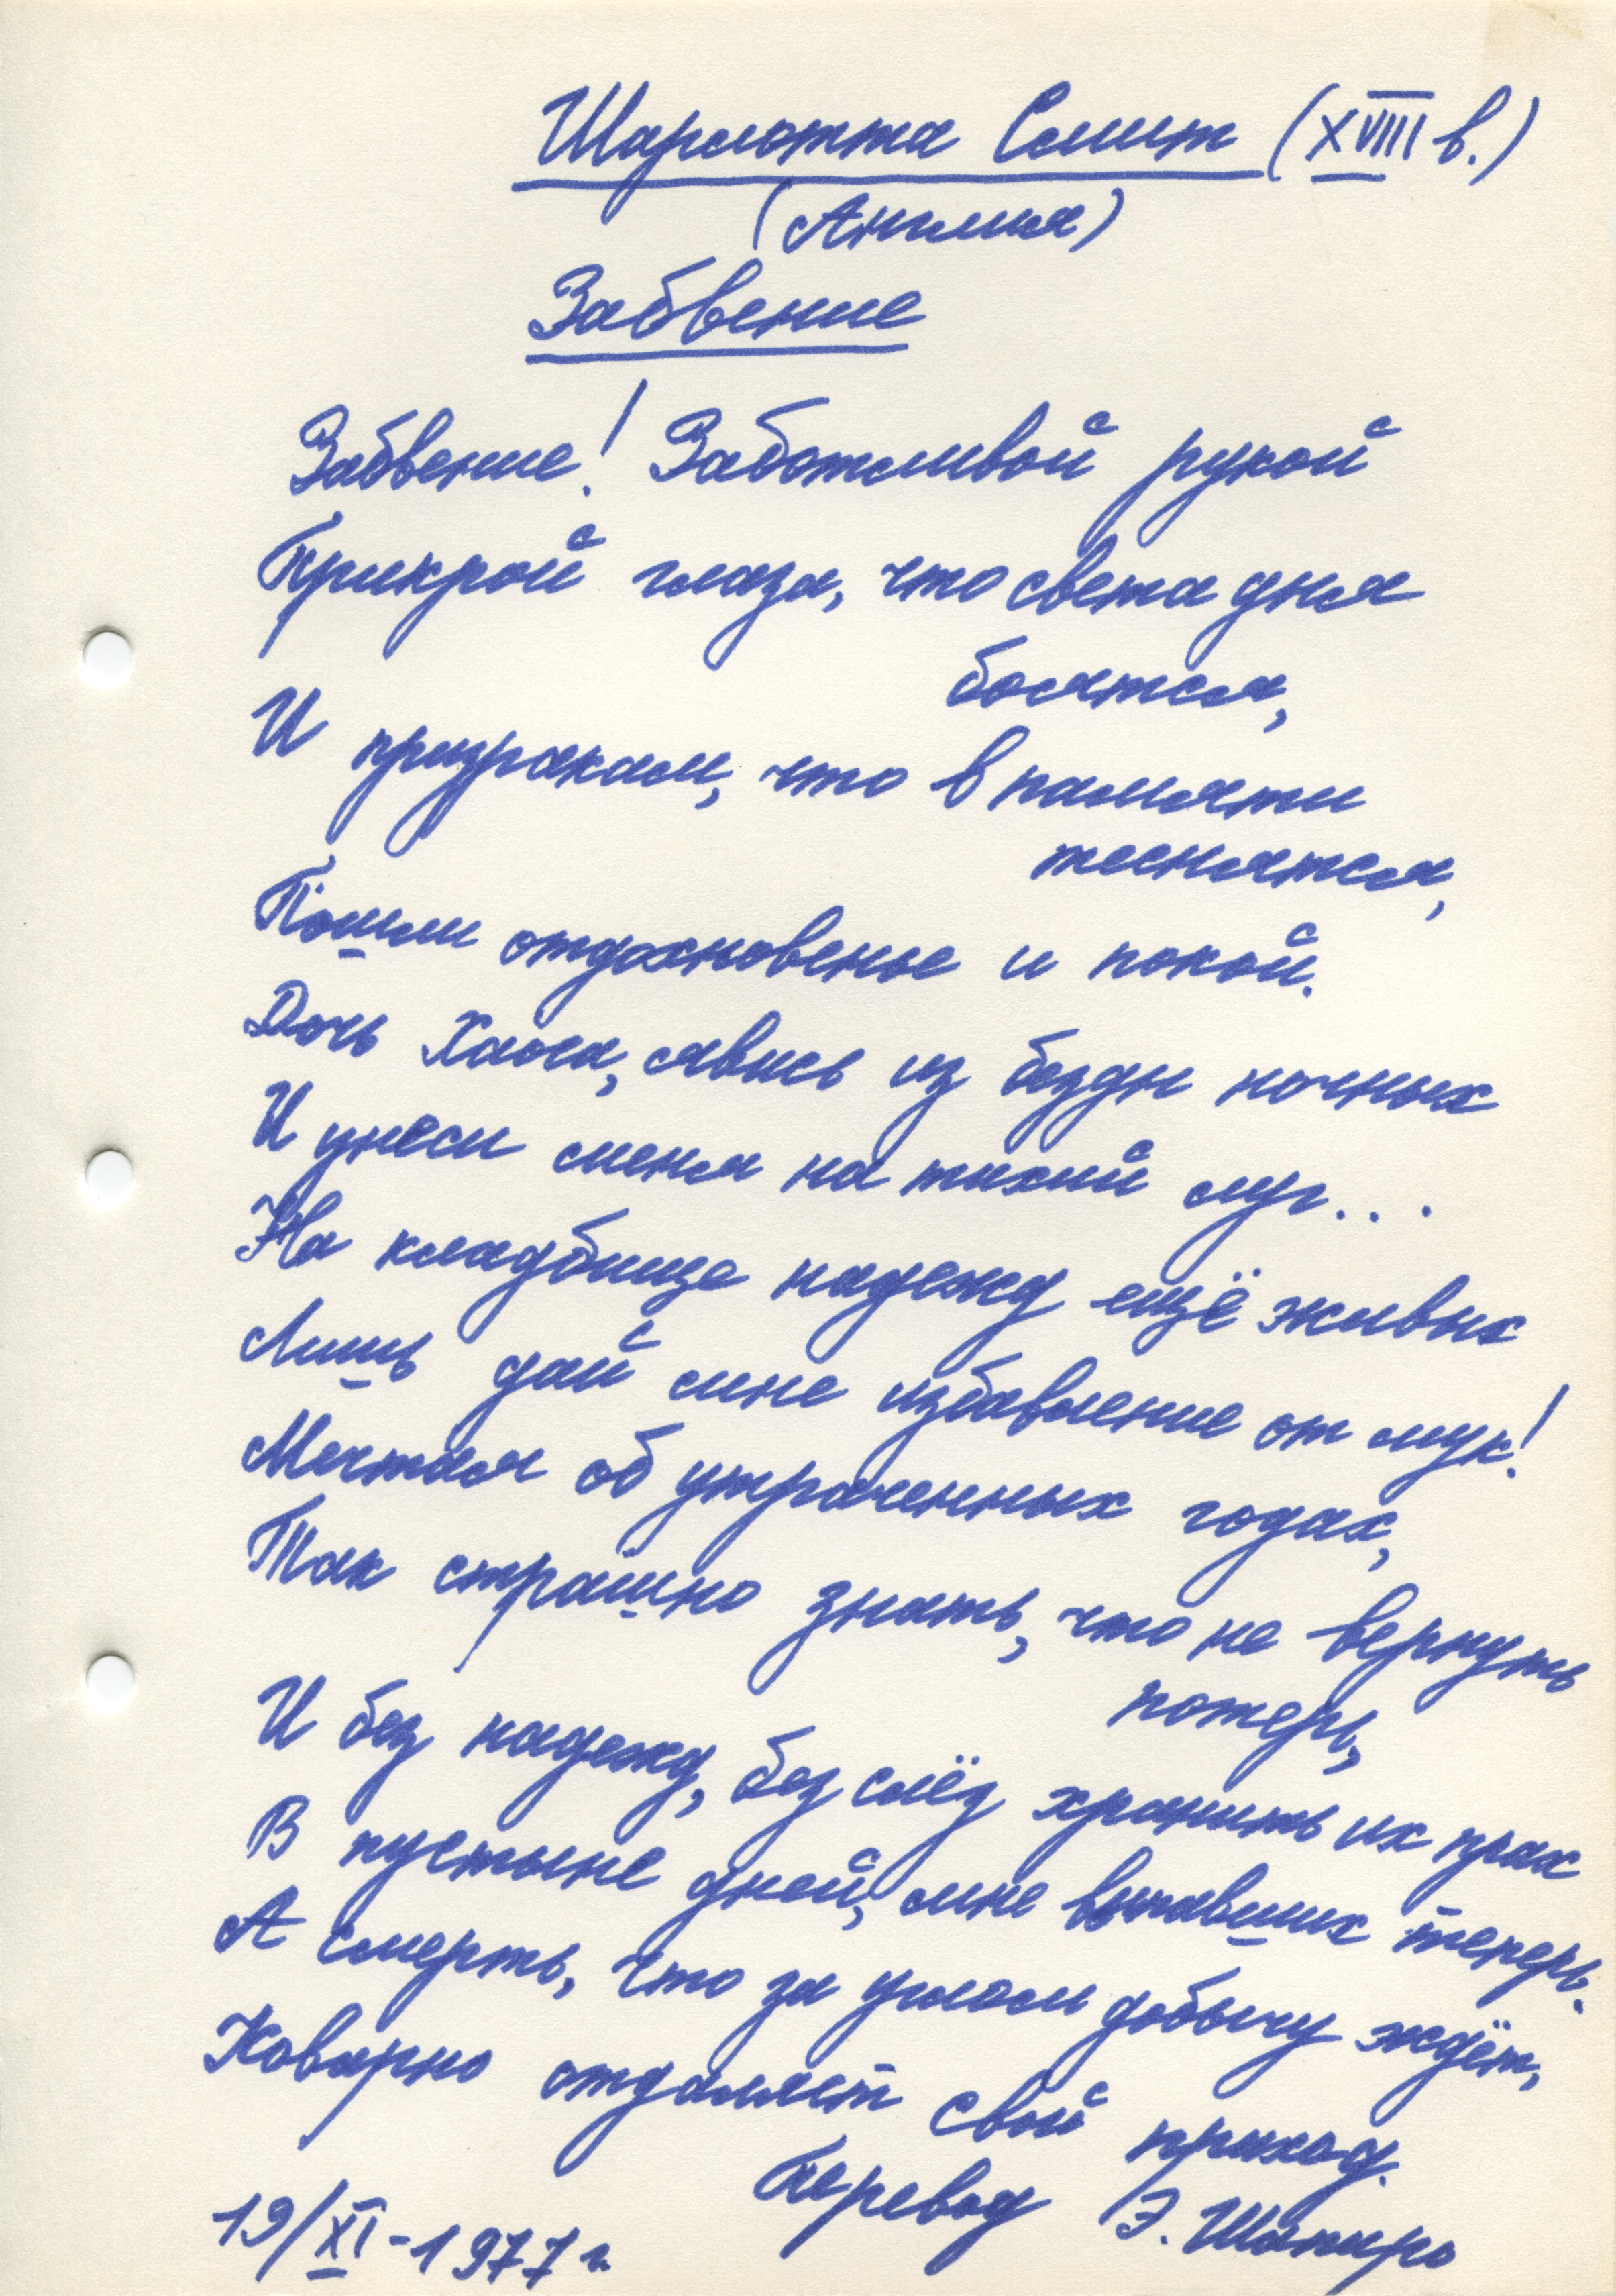 Шарлотта Смит (XVIII в.)
(Англия)
Забвение
Забвение! Заботливой рукой
Прикрой глаза, что света дня
боятся,
И призракам, что в памяти
теснятся,
Пошли отдохновенье и покой.
Дочь Хаоса, явись из бездн ночных
И унеси меня на тихий луг...
На кладбище надежд ещё живых
Лишь дай мне избавление от мук!
Мечтая об утраченных годах,
Так страшно знать, что не вернуть
потерь,
И без надежд, без слёз хранить их прах
В пустыне дней, мне выпавших теперь.
А смерть, что за углом добычу ждёт,
Коварно отдаляет свой приход.
Перевод Э. Шапиро
19/XI-1977 г.